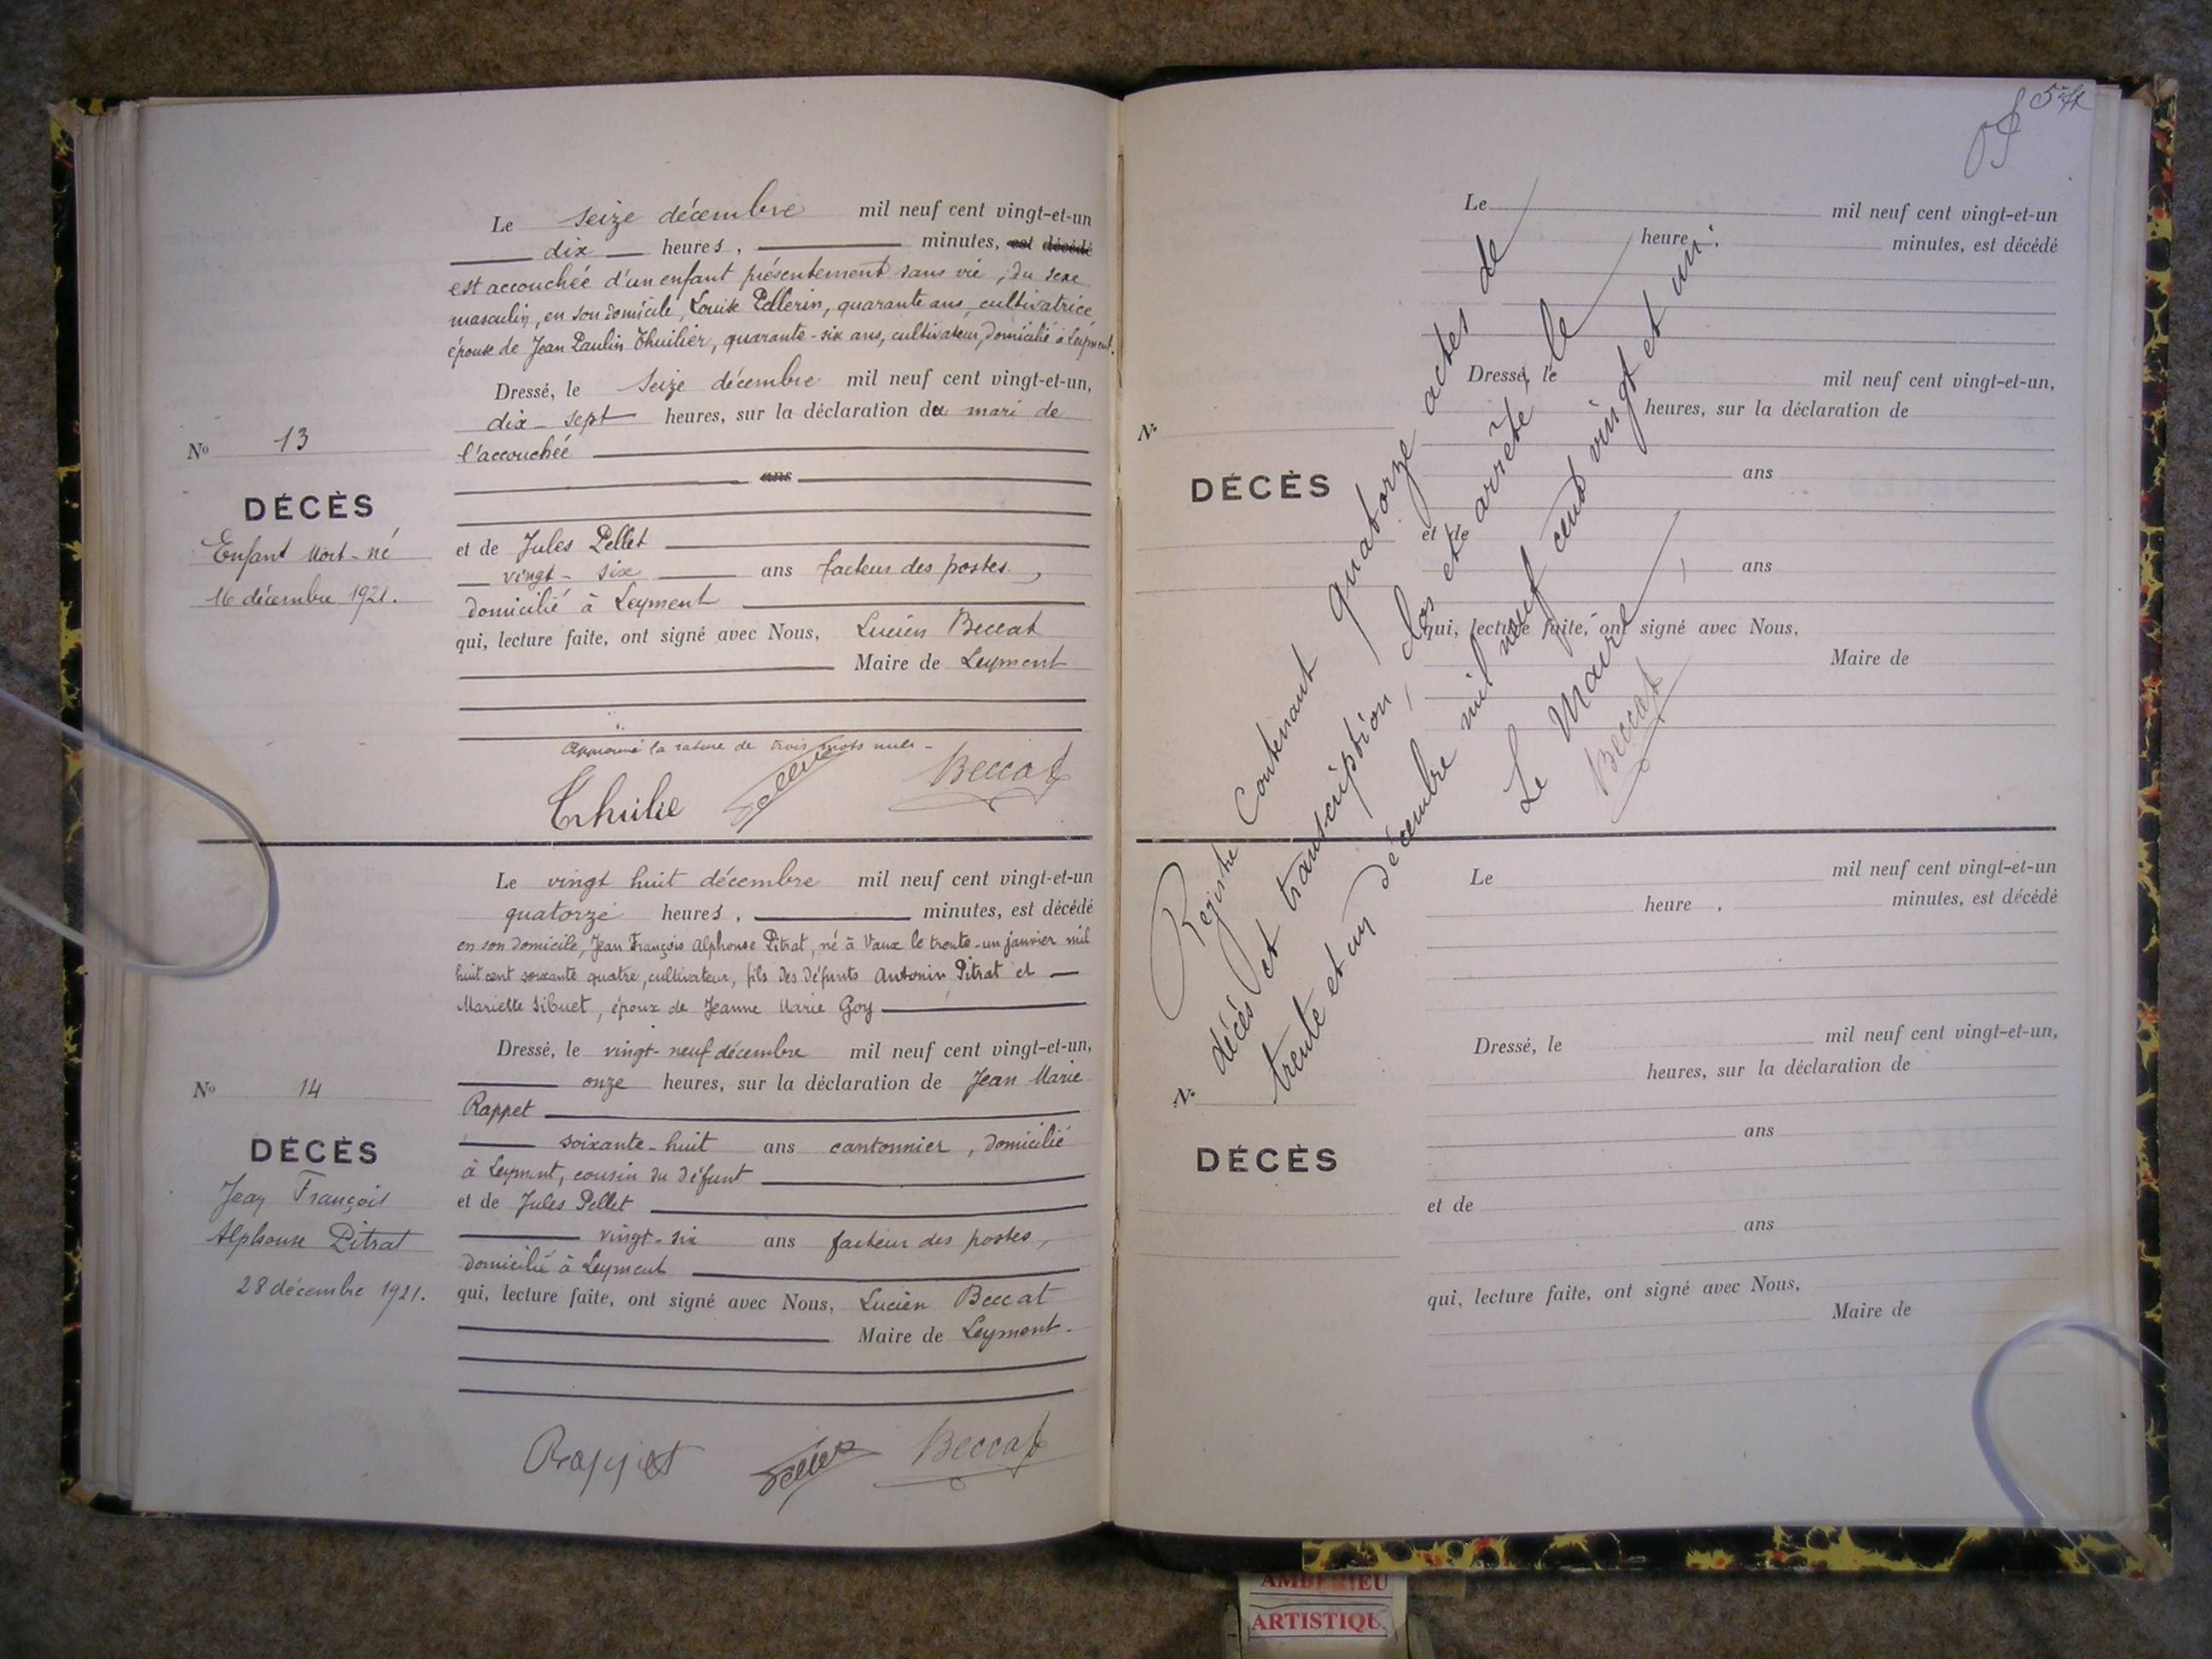 Le seize décembre mil neuf cent vingt-et-un
dix heures, minutes, est décédé
est accouchée d'un enfant présentement sans vie, du sexe
masculin, en son domicile, Louise Pellerin, quarante ans, cultivatrice,
épouse de Jean Paulin Thuilier, quarante-six ans, cultivateur, domicilié à Leyment.
Dressé, le Seize décembre mil neuf cent vingt-et-un,
dix-sept heures, sur la déclaration du mari de
l'accouchée
ans
et de Jules Pellet
vingt-six ans facteur des postes,
domicilié à Leyment
qui, lecture faite, ont signé avec Nous, Lucien Beccat
Maire de Leyment
Approuvé la rature de trois mots nuls -
Thuilie Pellet Beccat
No 13
DÉCÈS
Enfant Mort-né
16 décembre 1921.
Le vingt huit décembre mil neuf cent vingt-et-un
quatorze heures, minutes, est décédé
en son domicile, Jean François Alphonse Pitrat, né à Vaux le trente-un janvier mil
huit cent soixante quatre, cultivateur, fils des défunts Antonin Pitrat et
Mariette Sibuet, époux de Jeanne Marie Goy
Dressé, le vingt-neuf décembre mil neuf cent vingt-et-un,
onze heures, sur la déclaration de Jean Marie
Rappet
soixante-huit ans cantonnier, domicilié
à Leymnt, cousin du défunt
et de Jules Pellet
vingt-six ans facteur des postes,
domicilié à Leyment
qui, lecture faite, ont signé avec Nous, Lucien Beccat
Maire de Leyment.
Rappet Pellet Beccat
No 14
DÉCÈS
Jean François
Alphonse Pitrat
28 décembre 1921.
Le mil neuf cent vingt-et-un
heure, minutes, est décédé
Dressé, le mil neuf cent vingt-et-un,
heures, sur la déclaration de
No
ans
DÉCÈS
et de
ans
qui, lecture faite, ont signé avec Nous,
Maire de
Registre Contenant quatorze actes de
décès et transcription, clos et arrêté, le
trente et un décembre mil neuf cent vingt et un.
Le Maire,
Beccat
Le mil neuf cent vingt-et-un
heure, minutes, est décédé
Dressé, le mil neuf cent vingt-et-un,
heures, sur la déclaration de
No
ans
DÉCÈS
et de
ans
qui, lecture faite, ont signé avec Nous,
Maire de
AMBERIEU
ARTISTIQU